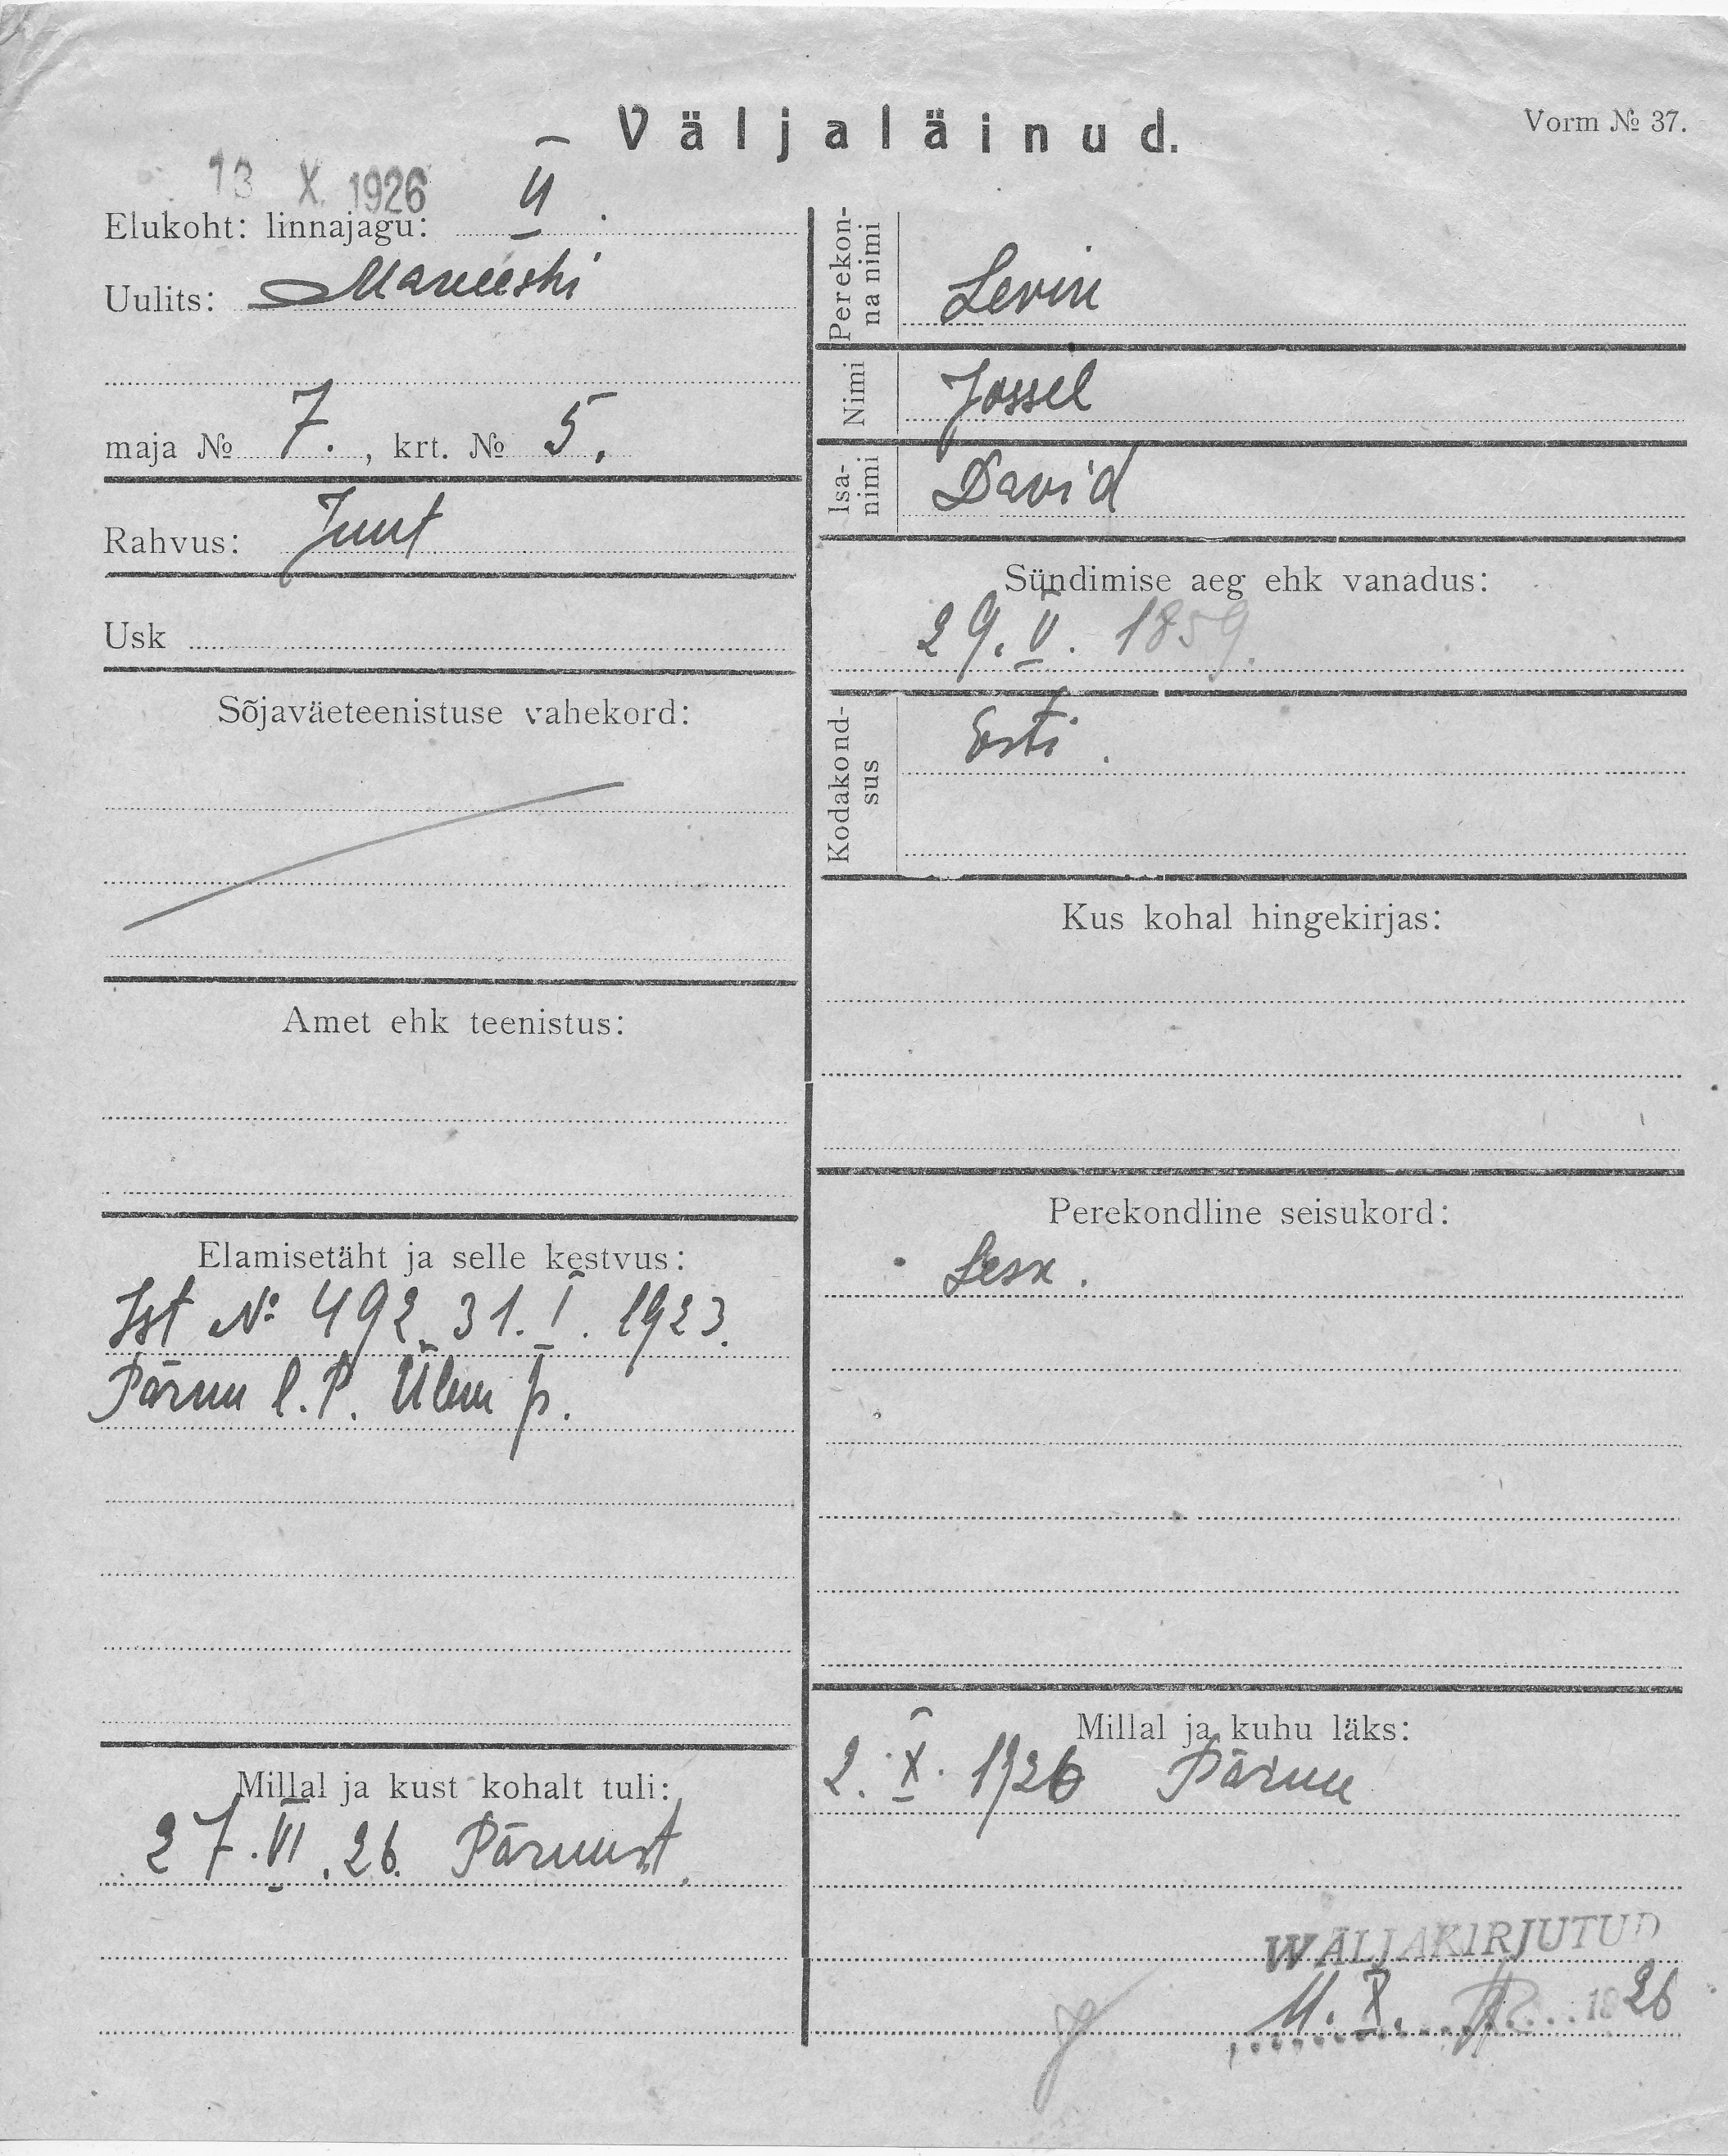 Väljaläinud.
Vorm № 37.
13 X. 1926
Elukoht: linnajagu: II.
Uulits: Maneeshi
maja № 7., krt. № 5.
Rahvus: Juut
Usk
Sõjaväeteenistuse vahekord:
Amet ehk teenistus:
Elamisetäht ja selle kestvus:
Ist № 492. 31. I. 1923.
Pärnu l. P. Ülem p.
Millal ja kust kohalt tuli:
27. VI. 26. Pärnust.
Perekon-
na nimi
Levin
Nimi
Jossel
Isa-
nimi
David
Sündimise aeg ehk vanadus:
29. V. 1859.
Kodakond-
sus
Eesti.
Kus kohal hingekirjas:
Perekondline seisukord:
Lesk.
Millal ja kuhu läks:
2. X. 1926 Pärnu
WÄLJAKIRJUTUD
11. X. 1926